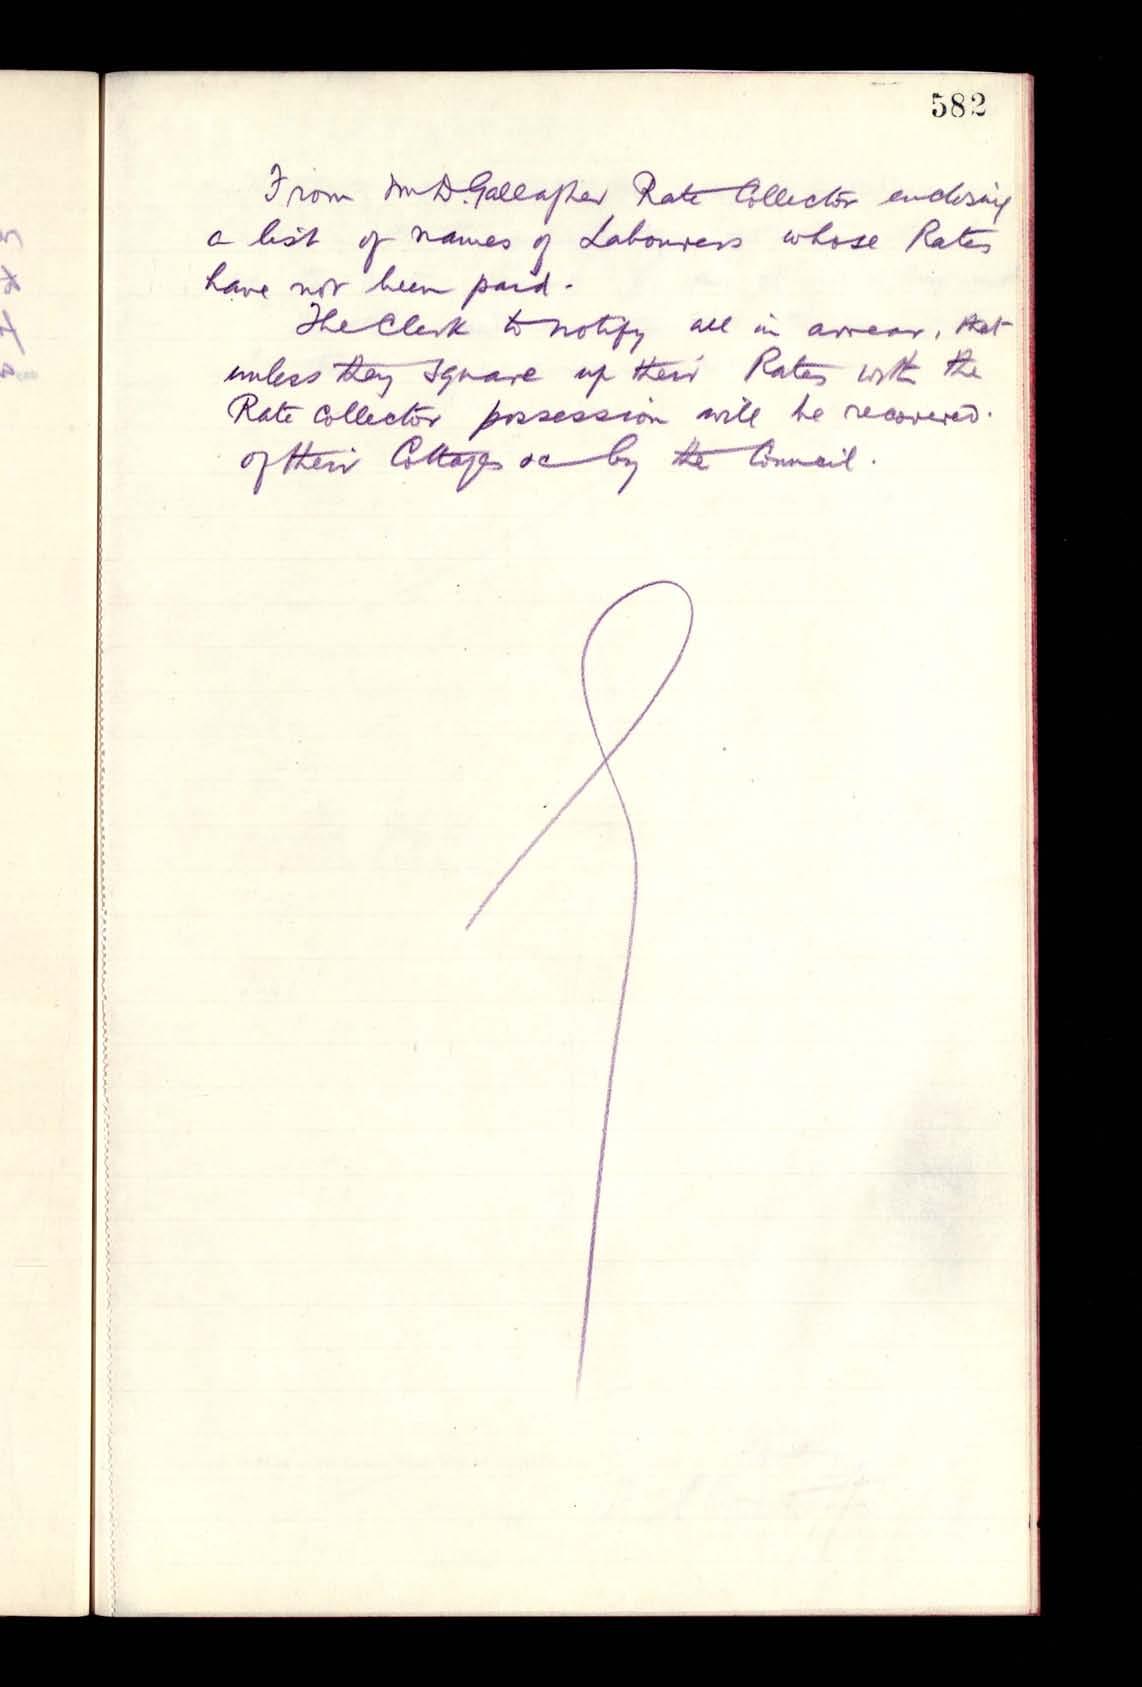 582
From Mr D. Gallagher Rate Collector enclosing
a list of names of Labourers whose Rates
have not been paid.
The Clerk to notify all in arrear, that
unless they square up their Rates with the
Rate Collector possession will be recovered
of their Cottages &c by the Council.